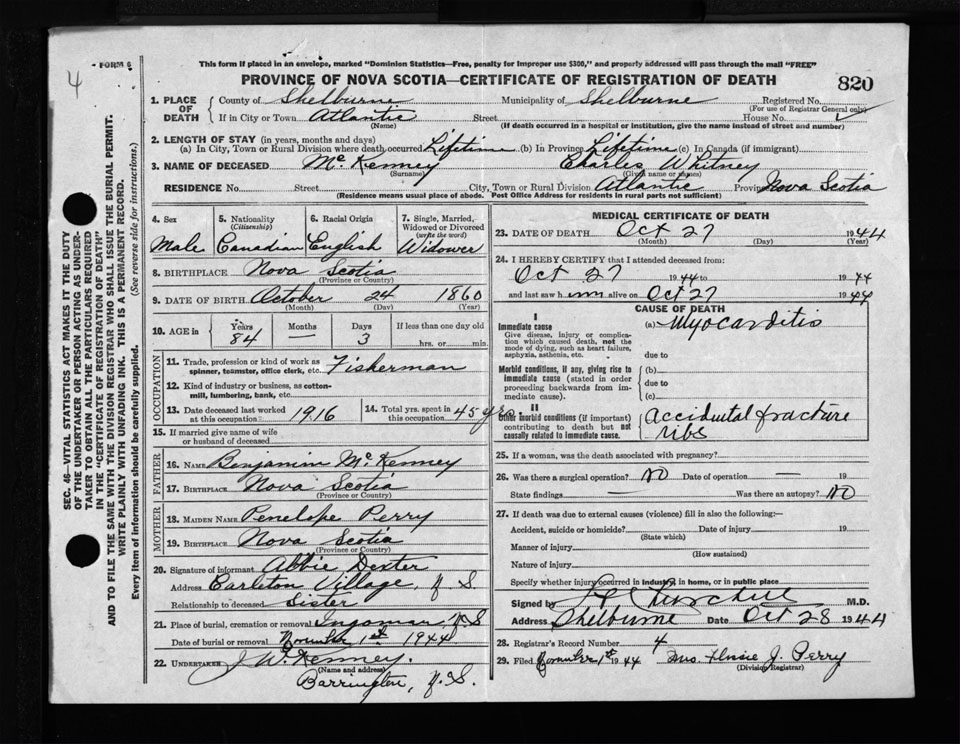 4
FORM 6
This form if placed in an envelope, marked "Dominion Statistics—Free, penalty for improper use $300," and properly addressed will pass through the mail "FREE"
PROVINCE OF NOVA SCOTIA—CERTIFICATE OF REGISTRATION OF DEATH
820
1. PLACE OF DEATH
County of Shelburne Municipality of Shelburne Registered No.
(For use of Registrar General only)
If in City or Town Atlantic Street House No.
(Name) (If death occurred in a hospital or institution, give the name instead of street and number)
2. LENGTH OF STAY (in years, months and days)
(a) In City, Town or Rural Division where death occurred Lifetime (b) In Province Lifetime (c) In Canada (if immigrant)
3. NAME OF DECEASED McKenney Charles Whitney
(Surname) (Given name or names)
RESIDENCE No. Street City, Town or Rural Division Atlantic Province Nova Scotia
(Residence means usual place of abode. Post Office Address for residents in rural parts not sufficient)
4. Sex
Male
5. Nationality
(Citizenship)
Canadian
6. Racial Origin
English
7. Single, Married, Widowed or Divorced
(write the word)
Widower
8. BIRTHPLACE Nova Scotia
(Province or Country)
9. DATE OF BIRTH October 24 1860
(Month) (Day) (Year)
10. AGE in
Years Months Days If less than one day old
84 — 3 hrs. or min.
OCCUPATION
11. Trade, profession or kind of work as spinner, teamster, office clerk, etc. Fisherman
12. Kind of industry or business, as cotton-mill, lumbering, bank, etc.
13. Date deceased last worked at this occupation 1916
14. Total yrs. spent in this occupation 45 yrs
15. If married give name of wife or husband of deceased
FATHER
16. NAME Benjamin McKenney
17. BIRTHPLACE Nova Scotia
(Province or Country)
MOTHER
18. MAIDEN NAME Penelope Perry
19. BIRTHPLACE Nova Scotia
(Province or Country)
20. Signature of informant Abbie Dexter
Address Carleton Village, N.S.
Relationship to deceased Sister
21. Place of burial, cremation or removal Ingomar NS
Date of burial or removal November 1st 1944
22. UNDERTAKER J.W. Kenney.
(Name and address)
Barrington, N.S.
MEDICAL CERTIFICATE OF DEATH
23. DATE OF DEATH Oct 27 1944
(Month) (Day) (Year)
24. I HEREBY CERTIFY that I attended deceased from:
Oct 27 1944 to 1944
and last saw him alive on Oct 27 1944
CAUSE OF DEATH
I
Immediate cause
Give disease, injury or complication which caused death, not the mode of dying, such as heart failure, asphyxia, asthenia, etc.
(a) Myocarditis
due to
Morbid conditions, if any, giving rise to immediate cause (stated in order proceeding backwards from immediate cause).
(b)
due to
(c)
II
Other morbid conditions (if important) contributing to death but not causally related to immediate cause.
Accidental fracture
ribs
25. If a woman, was the death associated with pregnancy?
26. Was there a surgical operation? No Date of operation — 19
State findings — Was there an autopsy? No
27. If death was due to external causes (violence) fill in also the following:—
Accident, suicide or homicide? Date of injury 19
(State which)
Manner of injury
(How sustained)
Nature of injury
Specify whether injury occurred in industry, in home, or in public place
Signed by Churchill M.D.
Address Shelburne Date Oct 28 1944
28. Registrar's Record Number 4
29. Filed November 1st 1944 Mrs. J. Perry
(Division Registrar)
SEC. 46—VITAL STATISTICS ACT MAKES IT THE DUTY
OF THE UNDERTAKER OR PERSON ACTING AS UNDER-
TAKER TO OBTAIN ALL THE PARTICULARS REQUIRED
IN THE "CERTIFICATE OF REGISTRATION OF DEATH"
AND TO FILE THE SAME WITH THE DIVISION REGISTRAR WHO SHALL ISSUE THE BURIAL PERMIT.
WRITE PLAINLY WITH UNFADING INK. THIS IS A PERMANENT RECORD.
Every item of information should be carefully supplied. (See reverse side for instructions.)